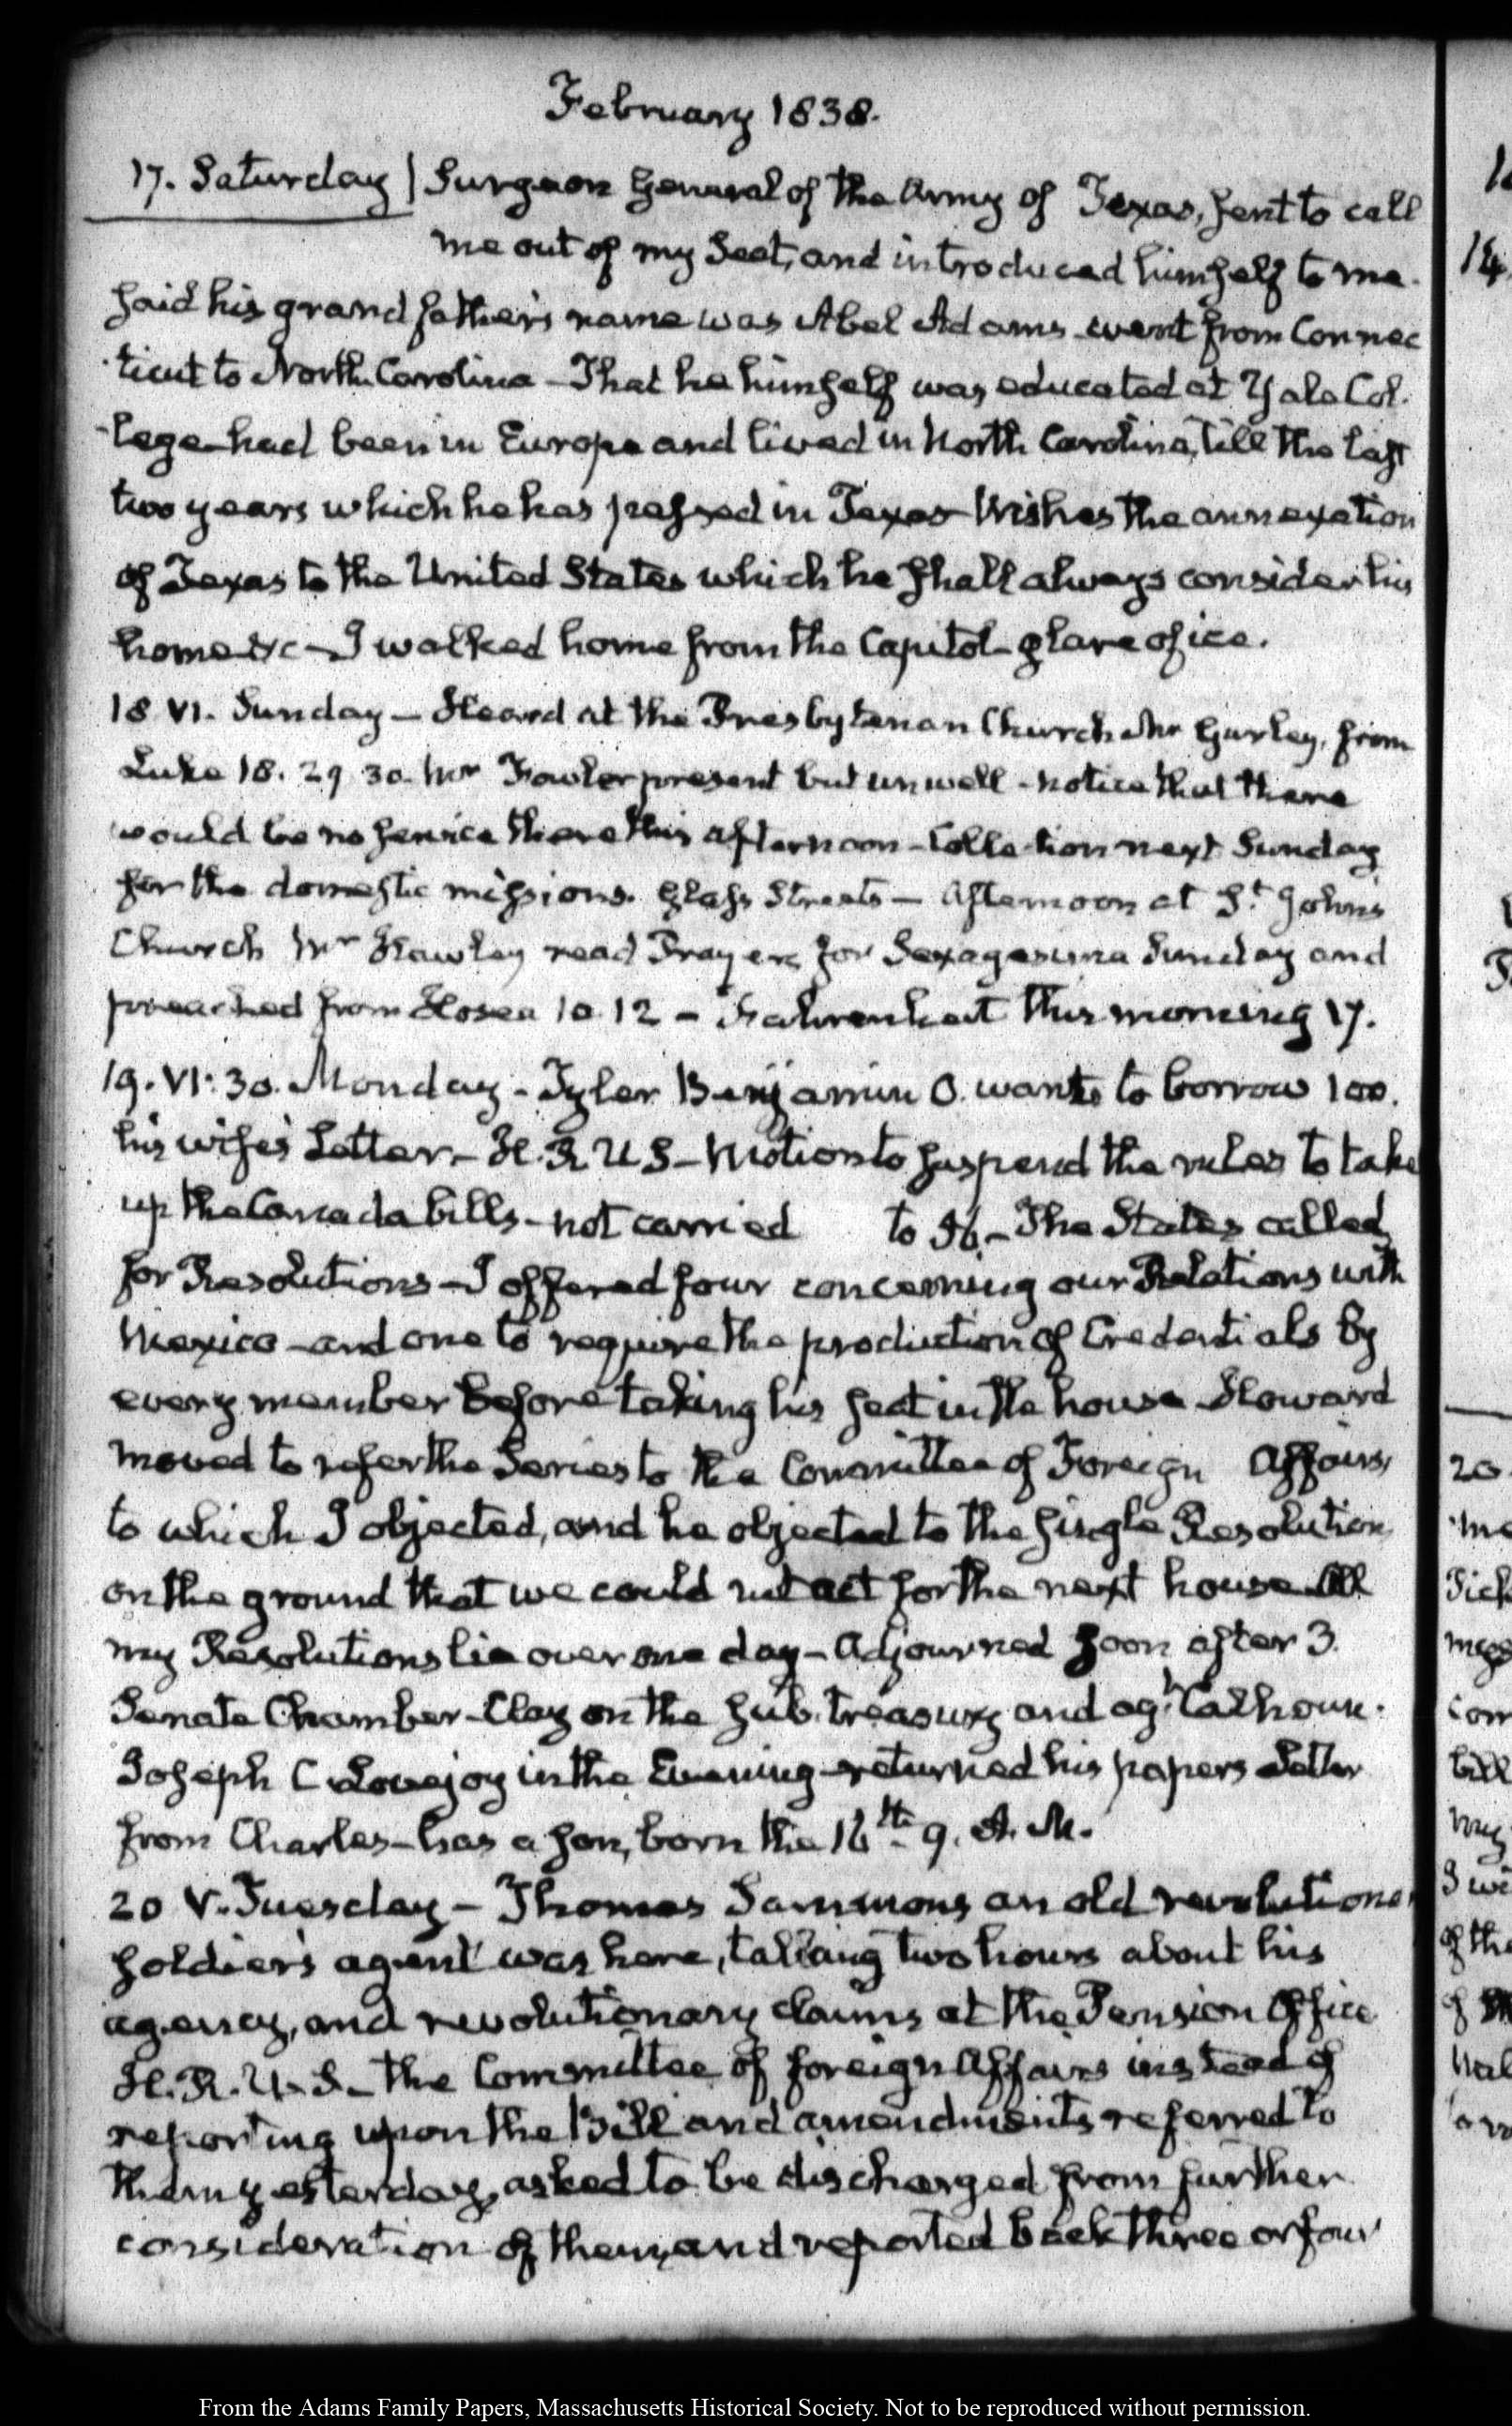 February 1838.
17. Saturday | Surgeon General of the Army of Texas, sent to call
me out of my Seat, and introduced himself to me.
said his grandfather's name was Abel Adams went from Connec
ticut to North Carolina – That he himself was educated at Yale Col-
lege had been in Europe and lived in North Carolina, till the last
two years which he has passed in Texas Wishes the annexation
of Texas to the United States which he shall always consider his
home &c – I walked home from the Capitol – glare of ice.
18 VI. Sunday – Heard at the Presbyterian Church Mr Gurley, from
Luke 18. 29 30. Mr Fowler present but unwell – notice that there
would be no service there this afternoon – Collection next Sunday
for the domestic missions. Glass Streets – Afternoon at St. John's
Church Mr Hawley read Prayers for Sexagesima Sunday and
preached from Hosea 10 12 – Fahrenheit this morning 17.
19. VI: 30. Monday – Tyler Benjamin O. wants to borrow 100.
his wife's Letter – H. R. U S – Motion to suspend the rules to take
up the Canada bills – not carried to – The States called
for Resolutions – I offered four concerning our Relations with
Mexico – and one to require the production of Credentials by
every member before taking his seat in the house Howard
moved to refer the Series to the Committee of Foreign Affairs,
to which I objected, and he objected to the single Resolution,
on the ground that we could not act for the next house. All
my Resolutions lie over one day – Adjourned soon after 3.
Senate Chamber – Clay on the sub. treasury and agt Calhoun.
Joseph C Lovejoy in the Evening – returned his papers Letter
from Charles – has a son, born the 16th 9. A. M.
20 V. Tuesday – Thomas Sammons an old revolutionary
soldier's agent was here, talking two hours about his
agency, and revolutionary claims at the Pension Office
H. R. U. S. – The Committee of foreign Affairs instead of
reporting upon the Bill and amendments referred to
them yesterday, asked to be discharged from further
consideration of them, and reported back three or four
From the Adams Family Papers, Massachusetts Historical Society. Not to be reproduced without permission.